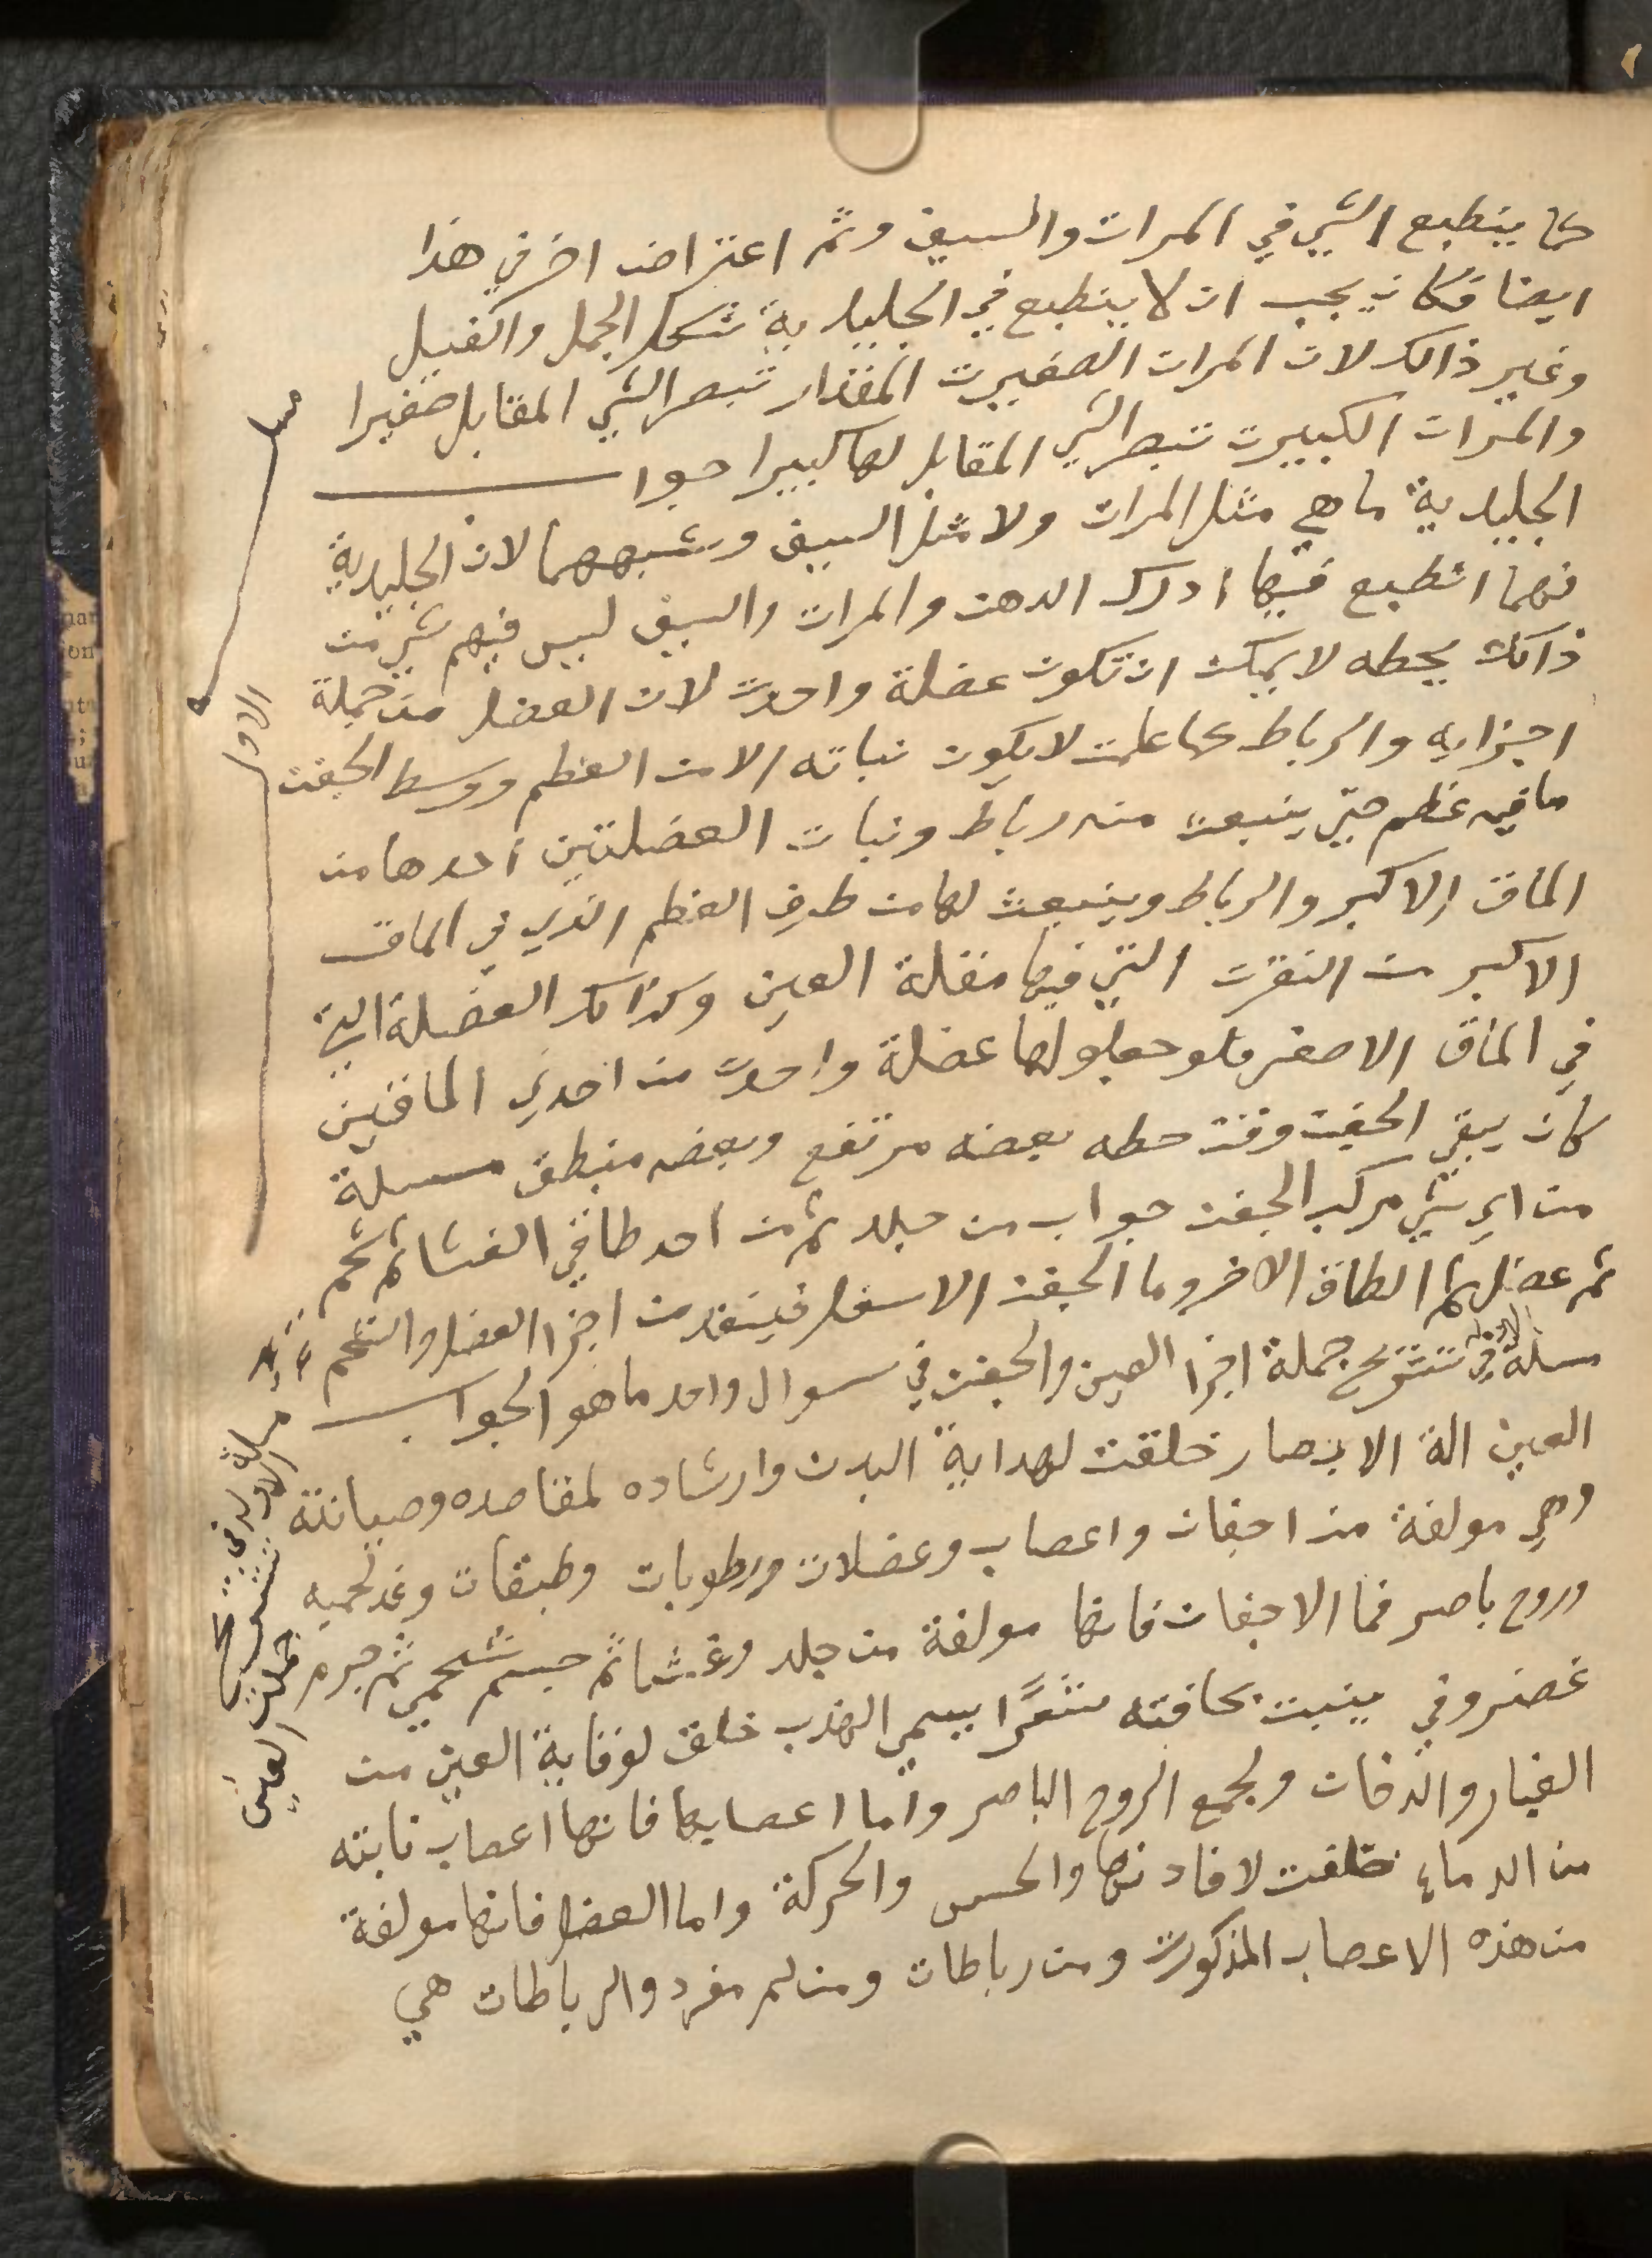 كما ينطبع الشي في المرات والسيف وثم اعتراض اخر في هذا
ايضا فكان يجب ان لا ينطبع في الجليدية شكل الجمل والفيل
وغير ذالك لان المرات الصغيرت المقدار تبصر الشي المقابل صغيرا
والمرات الكبيرت تبصر الشي المقابل لها كبيرا جواب
الجليدية ما هي مثل المرات ولا مثل السيف وشبههما لان الجليدية
فهما انطبع فيها ادرك الدهن والمرات والسيف ليس فيهم شي من
ذالك يحطه لا يمكن ان تكون عضلة واحدت لان العضل من جملة
اجزايه والرباط كما علمت لا يكون نباته الا من العظم ووسط الجفن
ما فيه عظم حتى ينبعث منه رباط ونبات العضلتين احدها من
الماق الاكبر والرباط وينبعث لها من طرف العظم الذي في الماق
الاكبر من النقرت التي فيها مقلة العين وكذالك العضلة التي
في الماق الاصغر فلو جعلو لها عضلة واحدت من احدي الماقين
كان يبقي الجفن وقت حطه بعضه مرتفع وبعضه منطبق مسلة
من اي شي مركب الجفن جواب من جلد ثم من احد طاقي الغشا ثم شحم
ثم عضل ثم الطاق الاخر وما الجفن الاسفل فينقد من اجزا العضل والشحم
مسلة الاولة في تشريح جملة اجزا العين والجفن في سوال واحد ما هو الجواب
العين الة الابصار خلقت لهداية البدن وارشاده لمقاصده وصيانته
وهي مولفة من اجفان واعصاب وعضلات ورطوبات وطبقات وغد لحميه
وروح باصر فما الاجفان فانها مولفة من جلد وغشا ثم جسم شحمي ثم جرم
غضروفي ينبت بحافته شعرًا يسمي الهدب خلق لوقاية العين من
الغبار والدخان ولجمع الروح الباصر واما اعصابها فانها اعصاب نابته
من الدماغ خلقت لافادتها والحس والحركة واما العضل فانها مولفة
من هذه الاعصاب المذكورت ومن رباطات ومن لحم مفرد والرباطات هي
الاول
مسلة
الاولة في
تشريح
جملت
العين